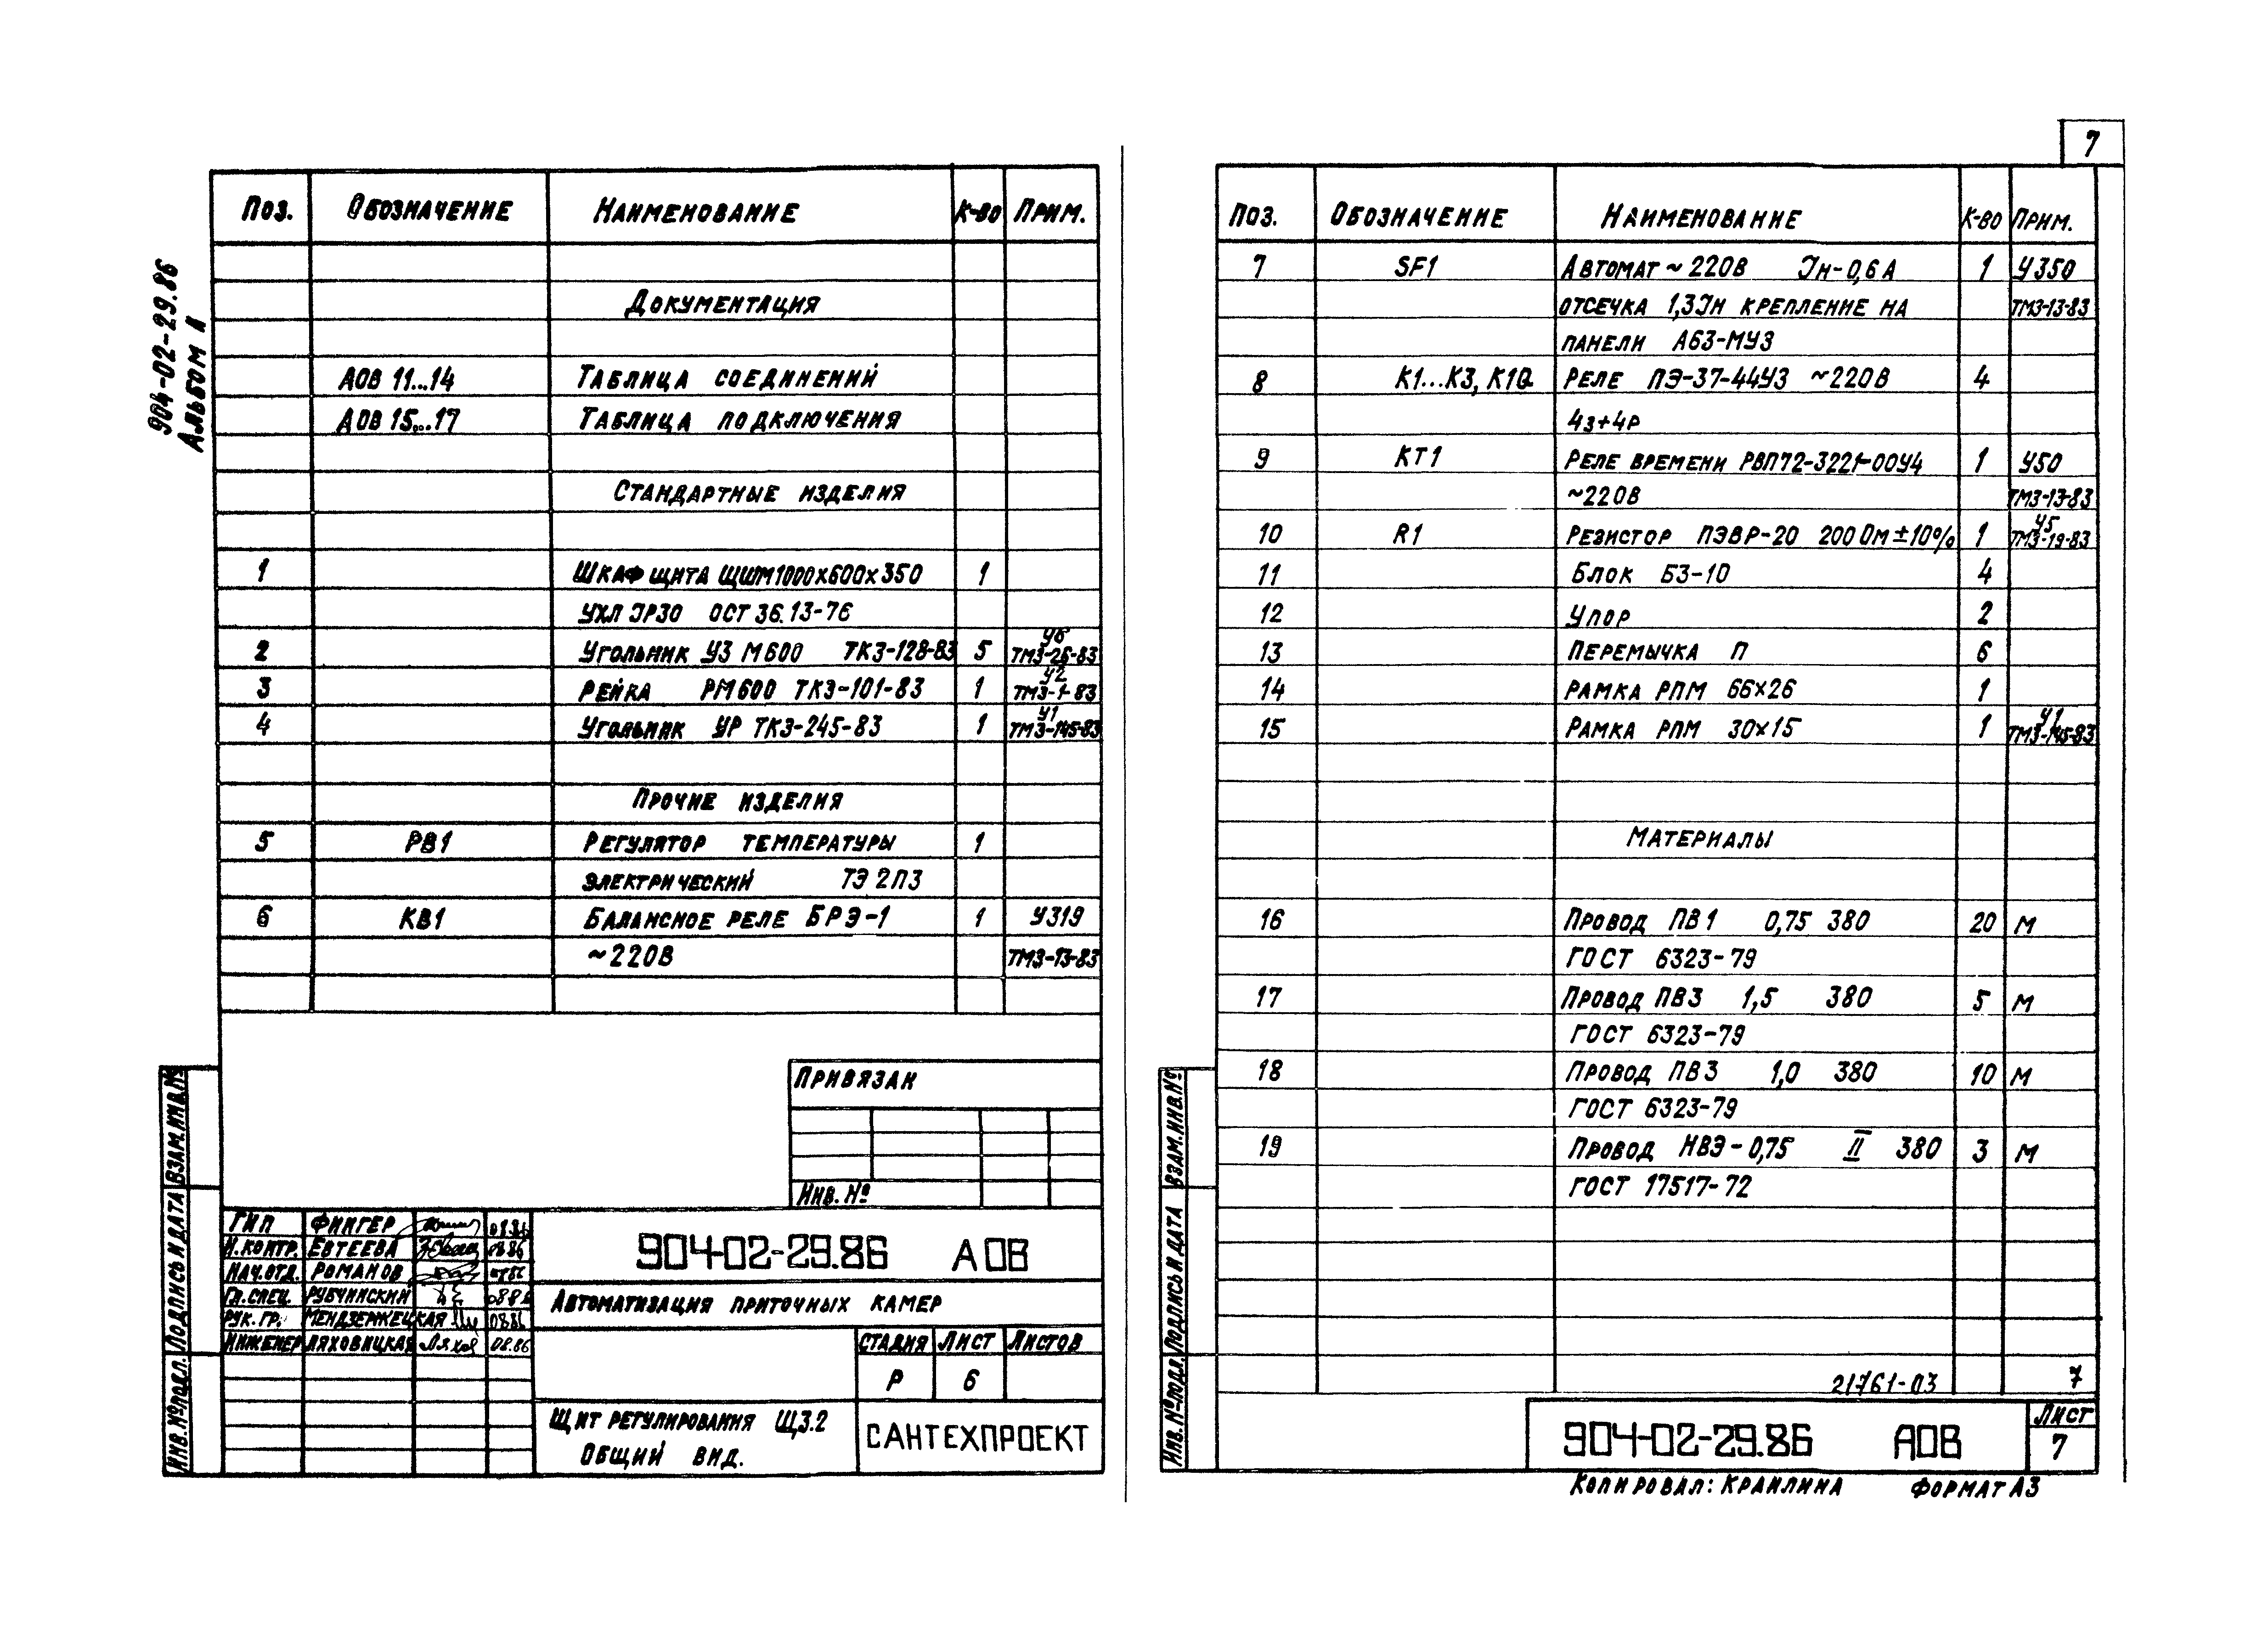 904-02-29.86
Альбом 1
Поз. Обозначение Наименование К-во Прим.
Документация
АОВ 11...14 Таблица соединений
АОВ 15...17 Таблица подключения
Стандартные изделия
1 Шкаф щита ЩШМ1000х600х350 1
УХЛ JР30 ОСТ 36.13-76
2 Угольник У3 М600 ТК3-128-83 5 У6 ТМ3-26-83
3 Рейка РМ600 ТК3-101-83 1 У2 ТМ3-1-83
4 Угольник УР ТК3-245-83 1 У1 ТМ3-145-83
Прочие изделия
5 РВ1 Регулятор температуры 1
электрический ТЭ 2П3
6 КВ1 Балансное реле БРЭ-1 1 У319
~220В ТМ3-13-83
Привязан
Инв. №
ГИП Фингер 08.86
Н.контр. Евтеева 08.86
Нач.отд. Романов
Гл.спец. Рубчинский 08.8
Рук.гр. Мендзержецкая 08.86
Инженер Ляховицкая 08.86
904-02-29.86 АОВ
Автоматизация приточных камер
Стадия Лист Листов
Р 6
Щит регулирования Щ3.2
Общий вид.
САНТЕХПРОЕКТ
Взам.инв.№
Подпись и дата
Инв.№подл.
7
Поз. Обозначение Наименование К-во Прим.
7 SF1 Автомат ~ 220В Jн-0,6А 1 У350
отсечка 1,3Jн крепление на ТМ3-13-83
панели А63-МУ3
8 К1...К3, К10 Реле ПЭ-37-44У3 ~220В 4
4з+4р
9 КТ1 Реле времени РВП72-3221-00У4 1 У50
~220В ТМ3-13-83
10 R1 Резистор ПЭВР-20 200 Ом ±10% 1 У5 ТМ3-19-83
11 Блок БЗ-10 4
12 Упор 2
13 Перемычка П 6
14 Рамка РПМ 66х26 1
15 Рамка РПМ 30х15 1 У1 ТМ3-145-83
Материалы
16 Провод ПВ1 0,75 380 20 м
ГОСТ 6323-79
17 Провод ПВ3 1,5 380 5 м
ГОСТ 6323-79
18 Провод ПВ3 1,0 380 10 м
ГОСТ 6323-79
19 Провод НВЭ-0,75 II 380 3 м
ГОСТ 17517-72
21761-03 7
904-02-29.86 АОВ
Лист
7
Взам.инв.№
Подпись и дата
Инв.№подл.
Копировал: Краилина Формат А3